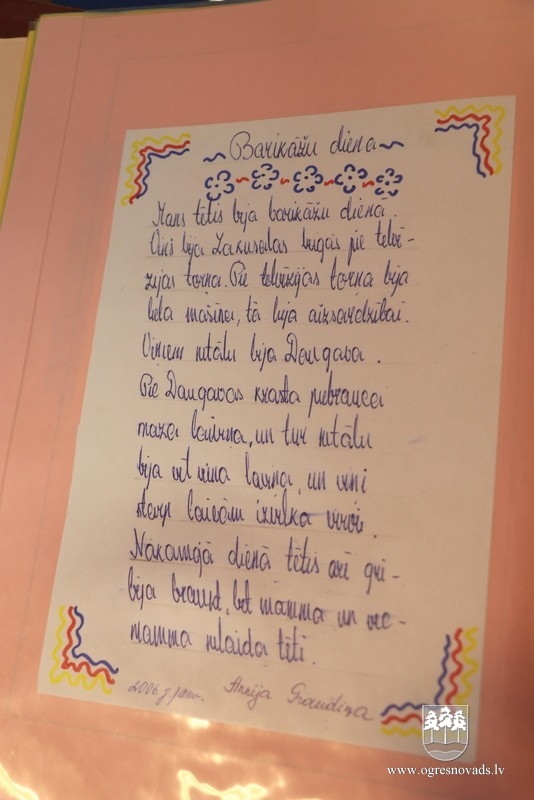 Barikāžu diena
Mans tētis bija barikāžu dienā.
Viņš bija Zaķusalas beigās pie televī-
zijas torņa. Pie televīzijas torņa bija
liela mašīna, tā bija aizsardzībai.
Viņiem netālu bija Daugava.
Pie Daugavas krasta piebrauca
maza laiviņa, un tur netālu
bija vēl viena laiviņa, un viņi
starp laivām izvilka virvi.
Nākamajā dienā tētis arī gri-
bēja braukt, bet mamma un vec-
mamma nelaida tēti.
2006. g. janv. Annija Graudiņa
www.ogresnovads.lv